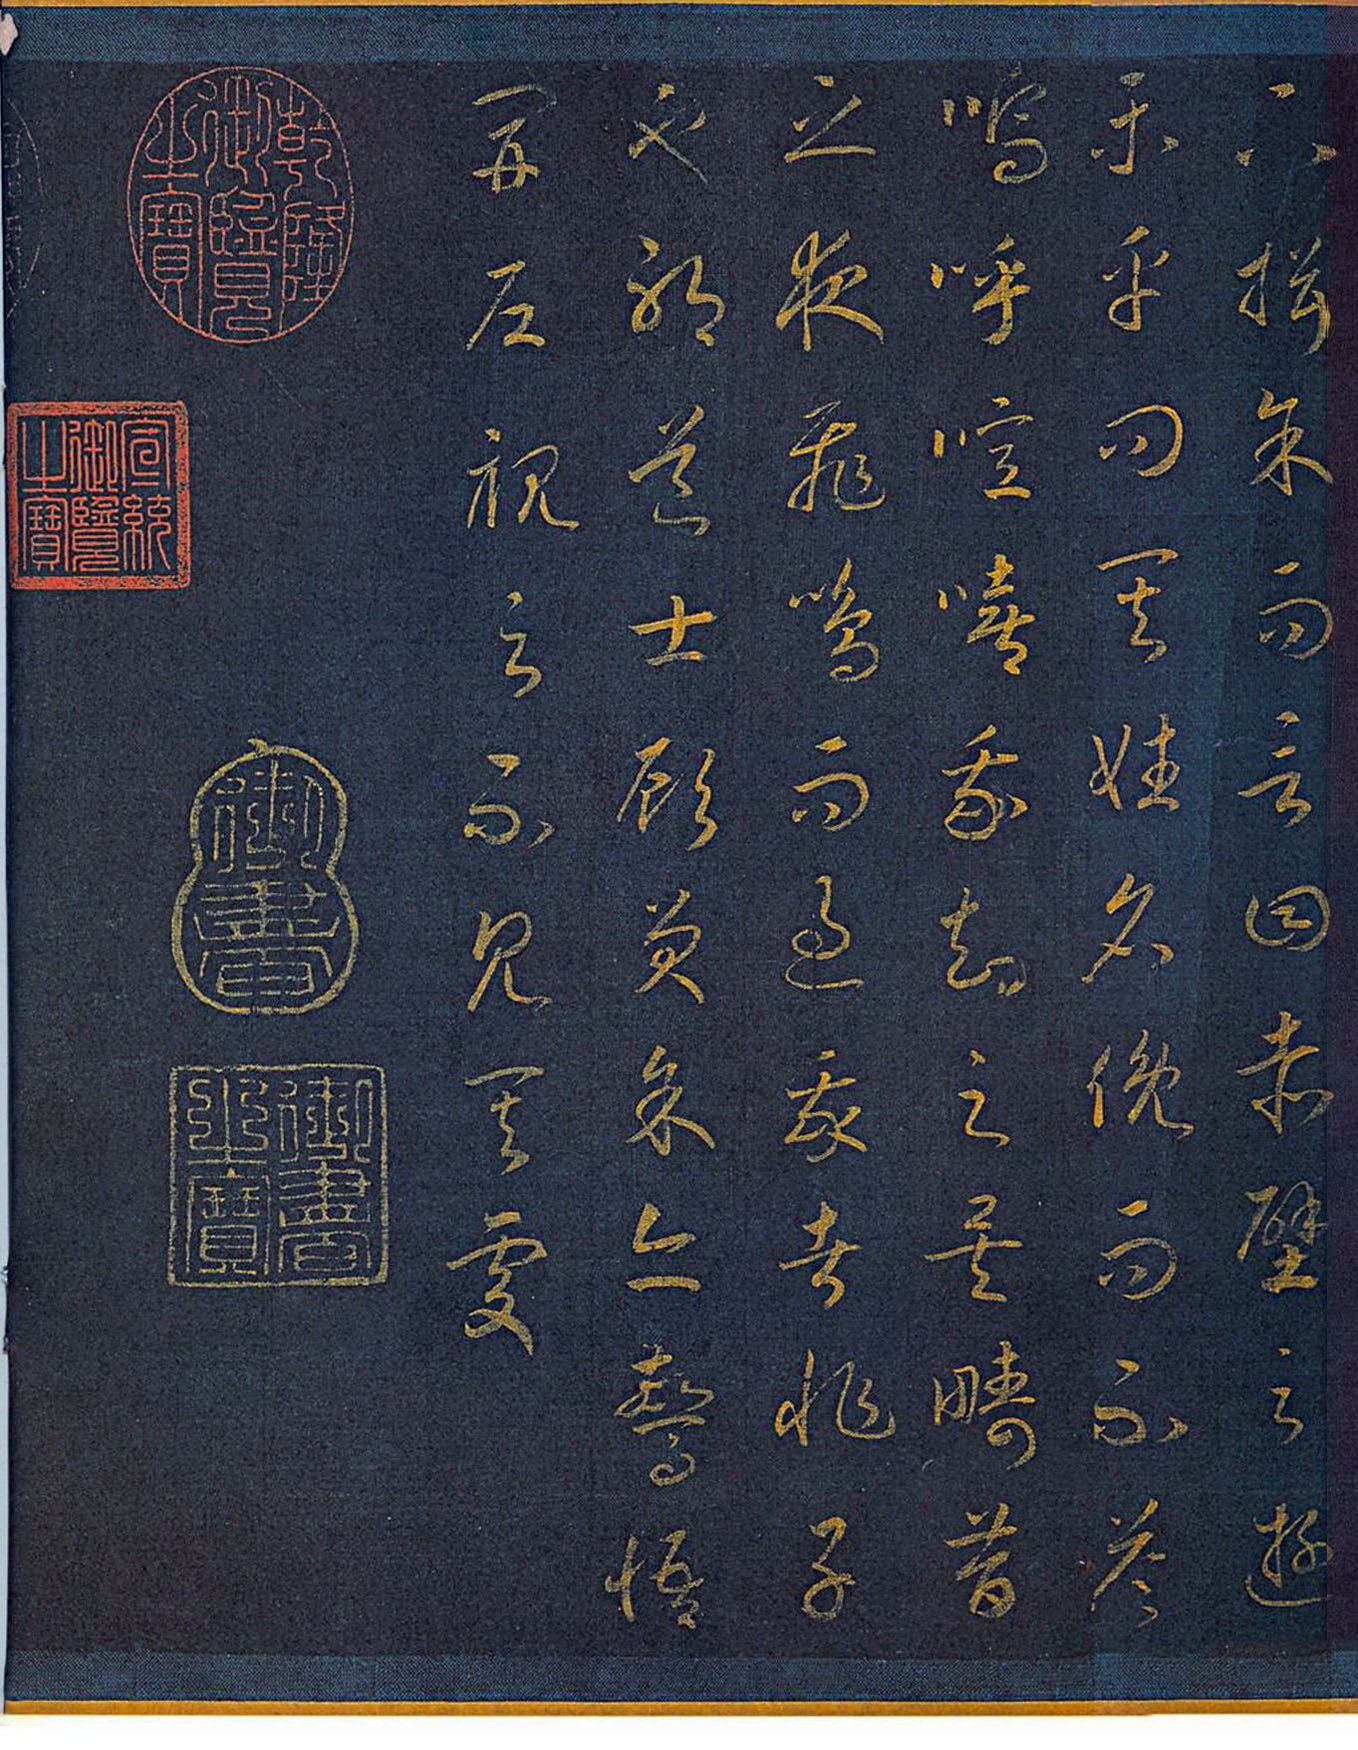 下揖余而言曰赤壁之遊
樂乎問其姓名俛而不答
嗚呼噫嘻我知之矣疇昔
之夜飛鳴而過我者非子
也耶道士顧笑余亦驚悟
開戶視之不見其處
乾隆御覽之寶
宣統御覽之寶
御書
御書之寶